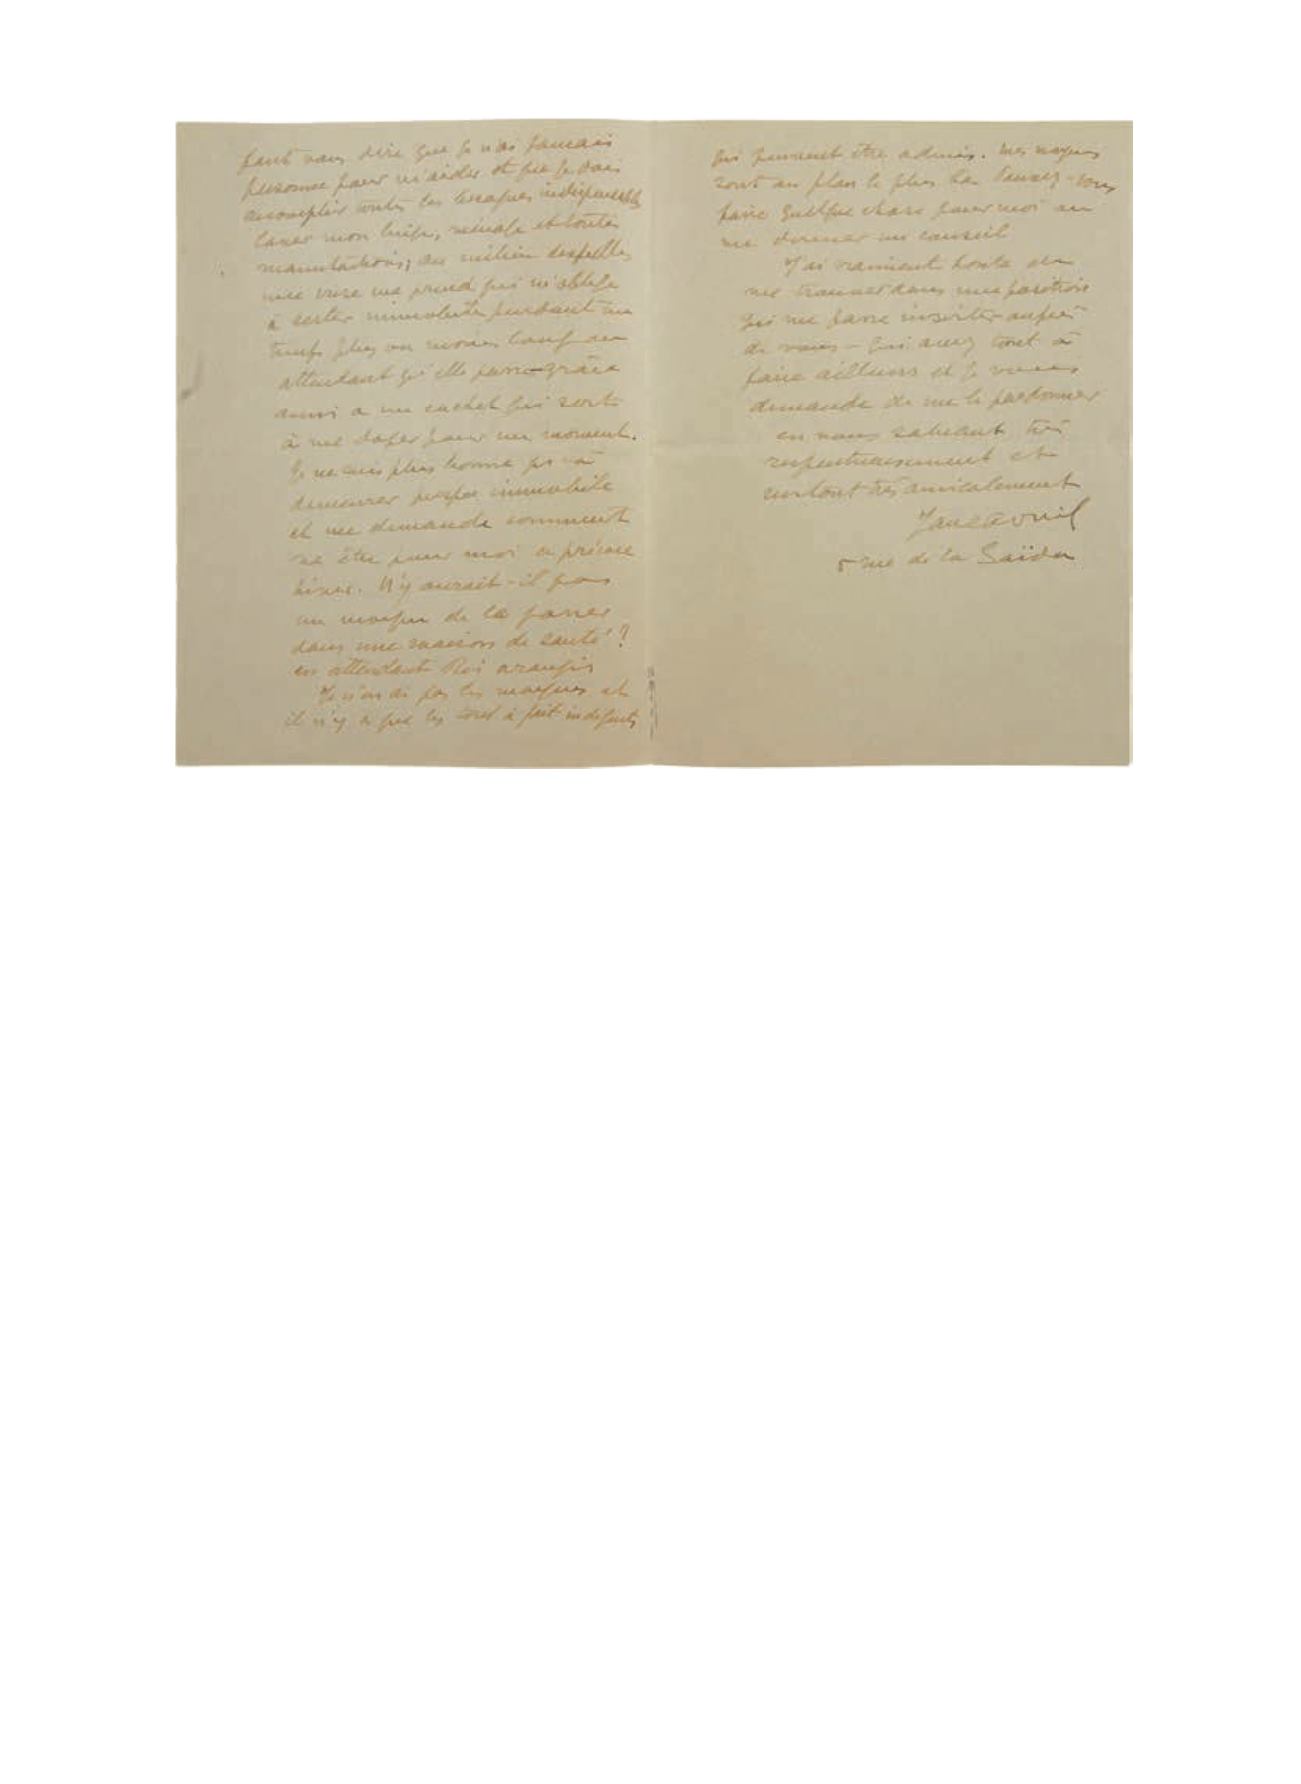 faut vous dire que je n'ai jamais
personne pour m'aider et que je dois
accomplir toutes les besognes indispensables
laver mon linge, ménage et toutes
manutentions; au milieu desquelles
une crise me prend qui m'oblige
à rester immobile pendant un
temps plus ou moins long en
attendant qu'elle passe grâce
aussi à un cachet qui sert
à me doper pour un moment.
Je ne suis plus bonne qu'à
demeurer presque immobile
et me demande comment
va être pour moi ce
hiver. N'y aurait-il pas
un moyen de le passer
dans une maison de santé?
en attendant
Je n'en ai pas les moyens et
il n'y a que les tout à fait indigents
qui peuvent être admis. Mes moyens
sont au plan le plus bas pouvez-vous
faire quelque chose pour moi ou
me donner un conseil
J'ai vraiment honte de
me trouver dans une position
qui me fasse insister auprès
de vous - qui avez tout à
faire ailleurs et je vous
demande de me le pardonner
en vous saluant très
respectueusement et
surtout très amicalement
Jane Avril
5 rue de la Saïda